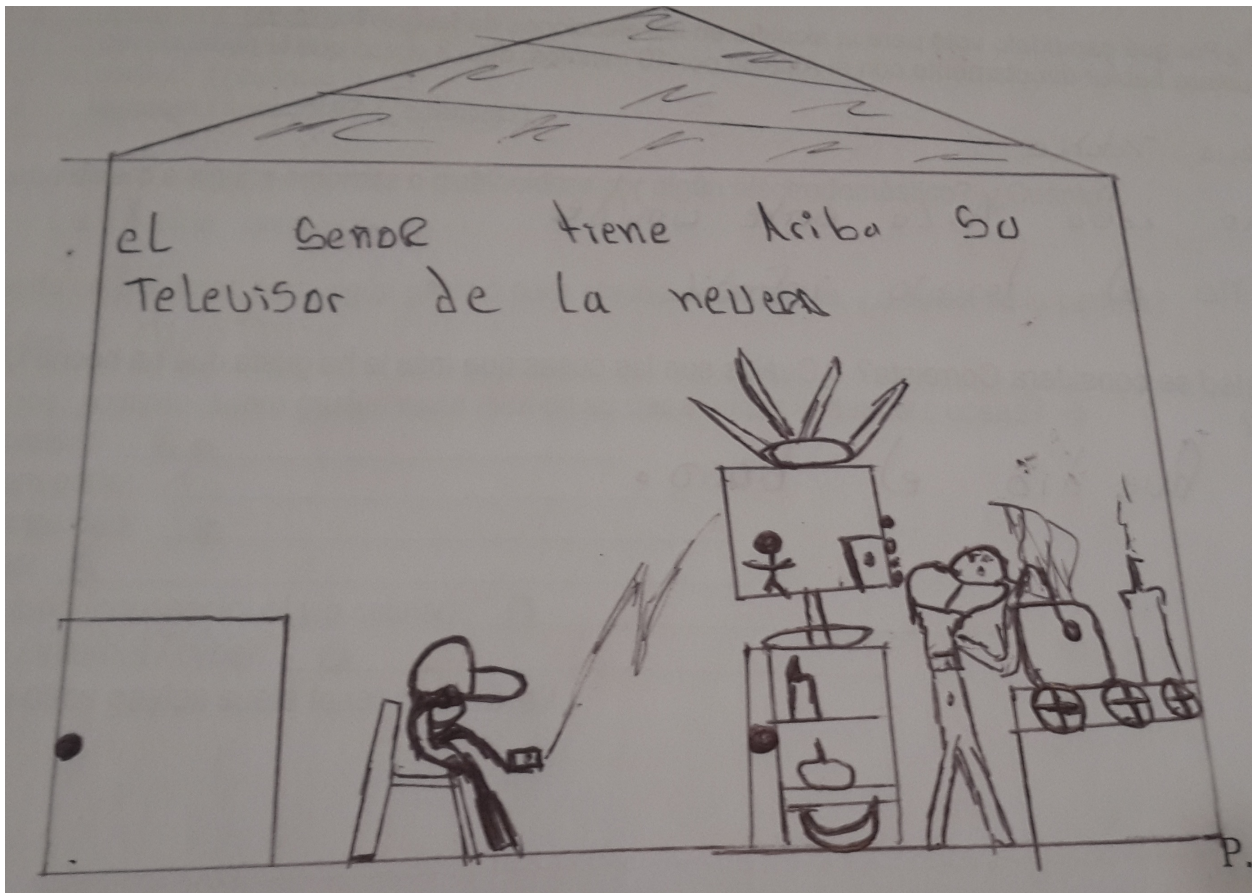 eL Señor tiene Ariba Su
Televisor de la nevera
P.